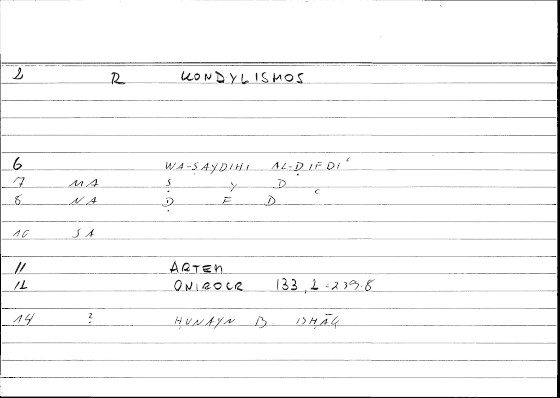 2 R KONDYLISMOS
6 WA-ṢAYDIHI AL-ḌIFDIʿ
7 MA Ṣ Y D
8 NA Ḍ F D ʿ
10 SA
11 ARTEM
12 ONIROCR 133, 2 - 239.8
14 ? ḤUNAYN B. ISḤĀQ